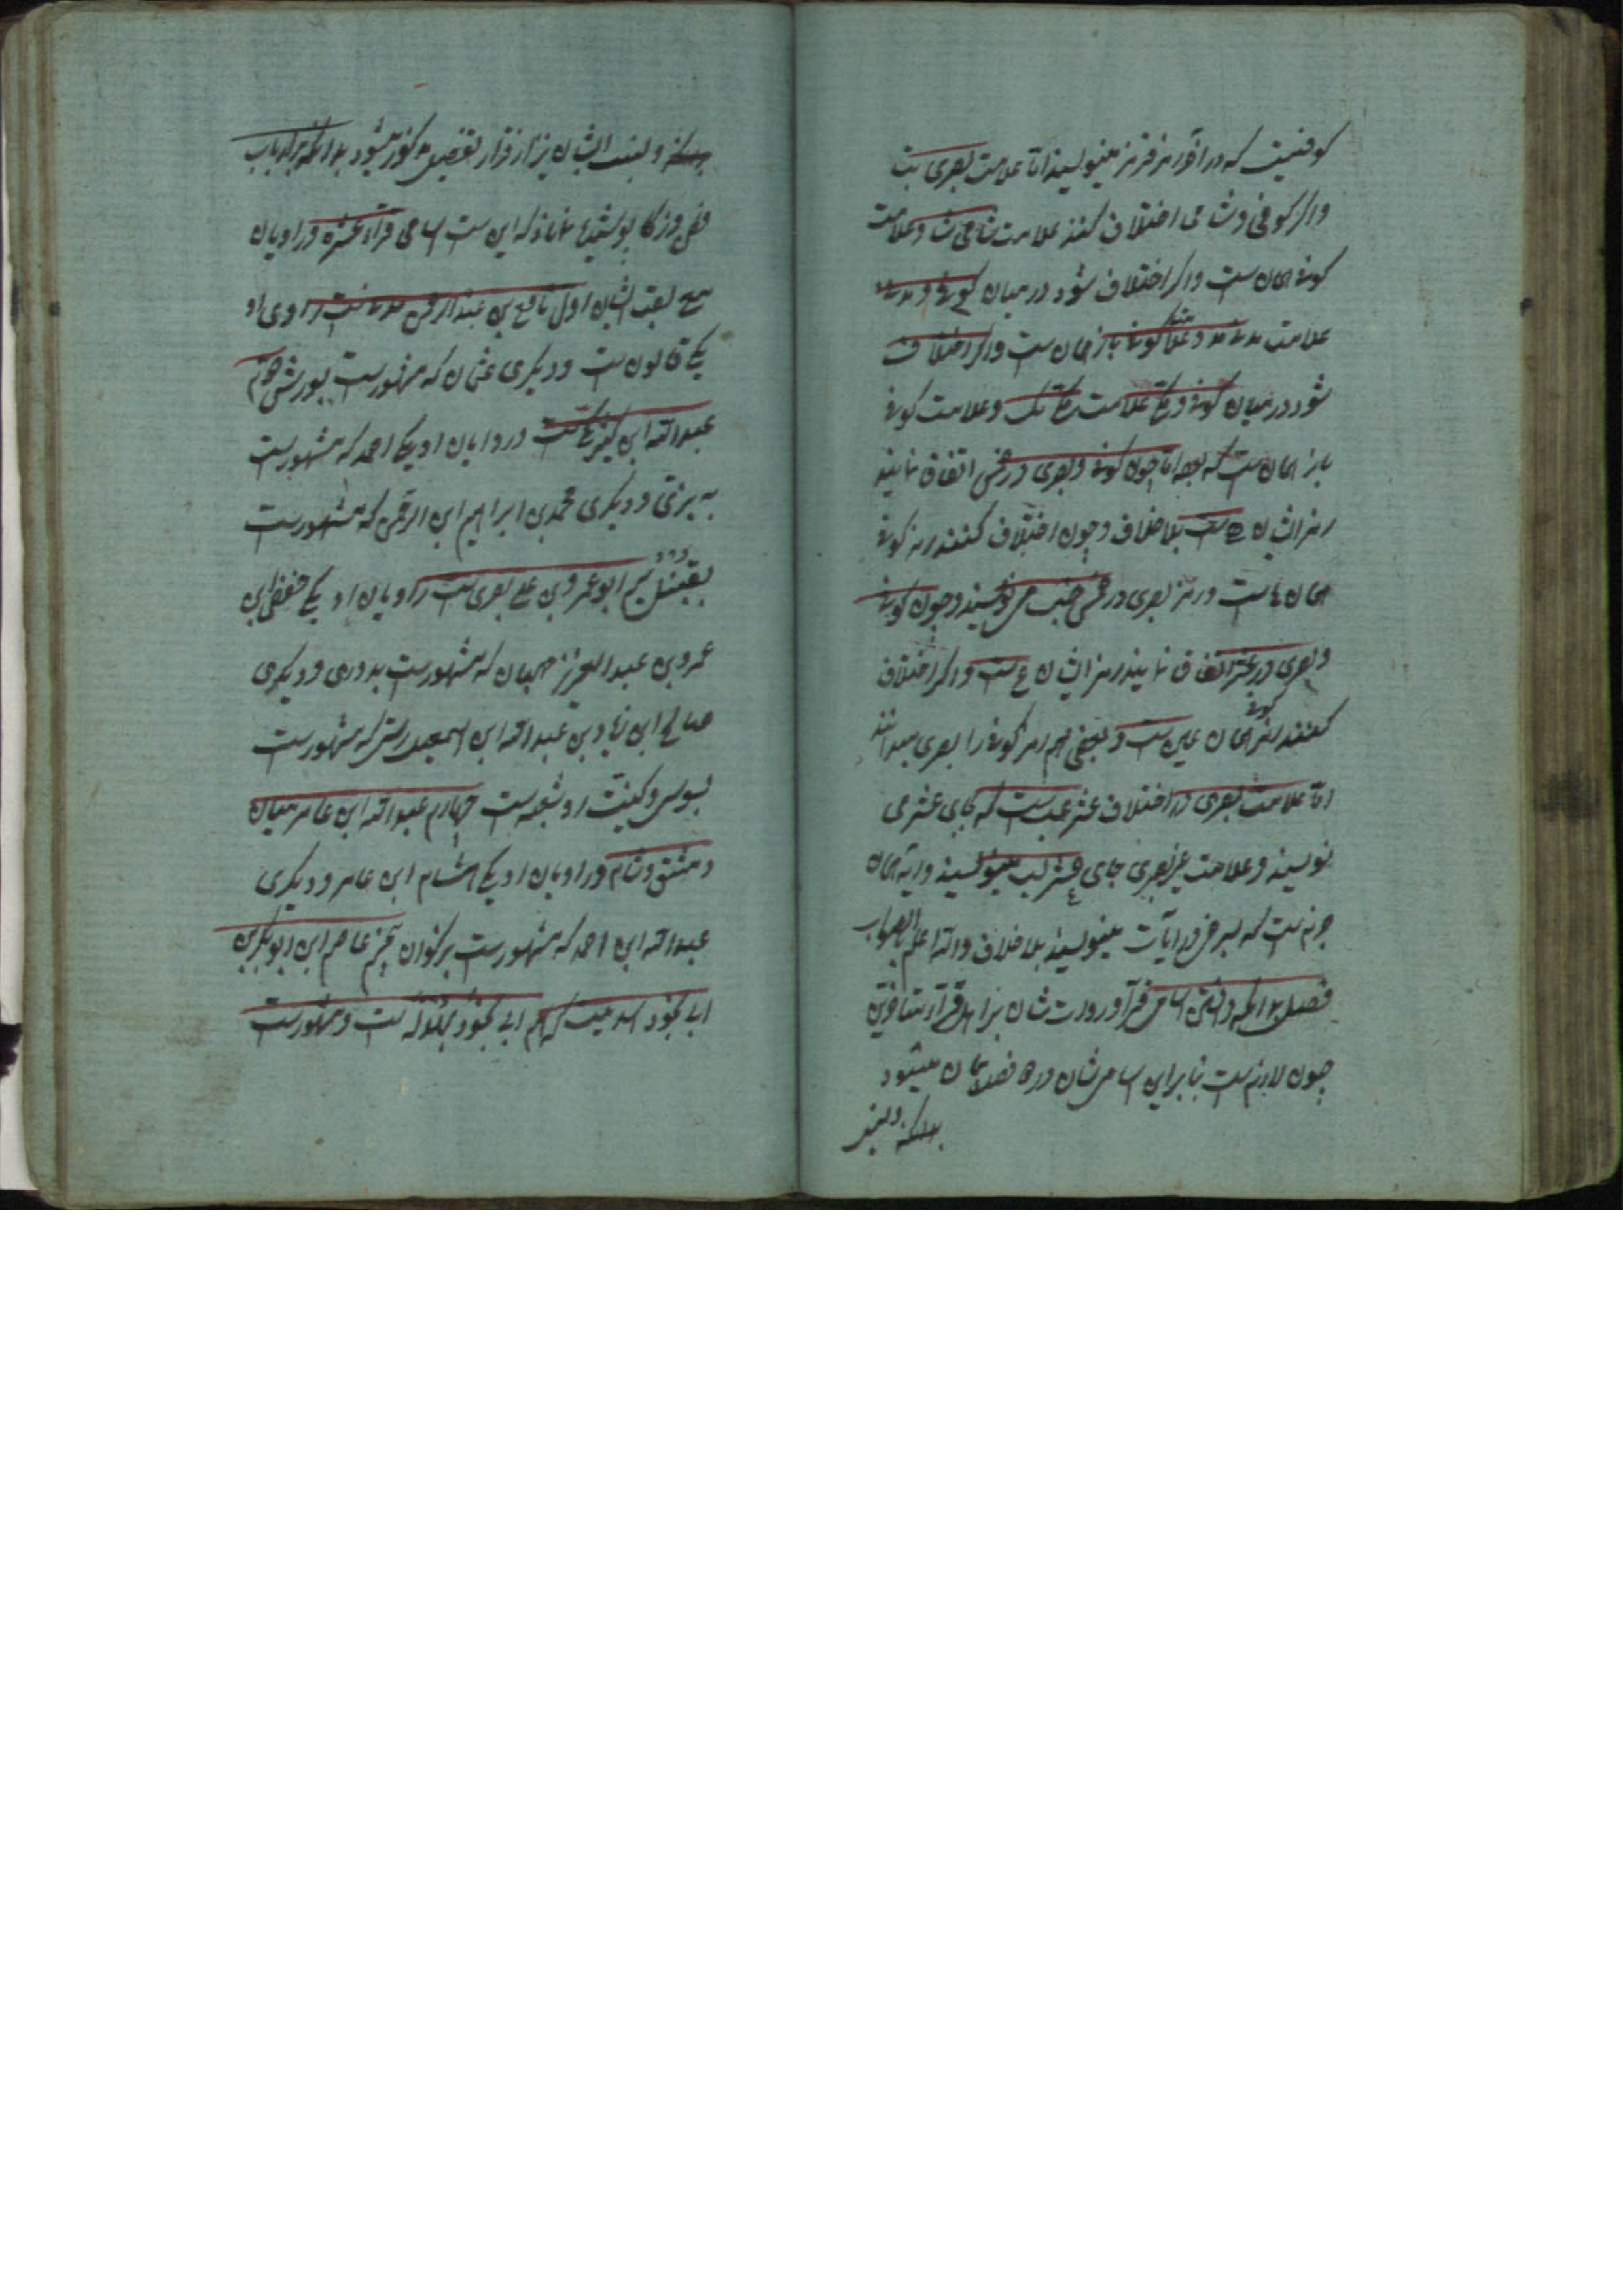 کوفیست که در آخر هر فرمز مینویسند اما علامت بصری بت
واکر کوفی و شامی اختلاف کنند علامت شامی شا وعلامت
کوفی همان ست واکر اختلاف شود در میان کوفی و مدنی
علامت مدنی مد وعلامت کوفی باز همان ست واکر اختلاف
شود در میان کوفی و مکی علامت مکی مک وعلامت کوفی
باز همان ست که بود اما چون کوفی وبصری در خمس اتفاق نمایند
رمز ایشان ه ست بلا خلاف وچون اختلاف کنند رمز کوفی
همان ها ست ورمز بصری در خمس خب می نویسند وچون کوفی
وبصری در عشر اتفاق نمایند رمز ایشان ع ست واکر اختلاف
کنند رمز کوفی همان عین ست و بعضی هم رمز کوفی را بصری میدانند
اما علامت بصری در اختلاف عشر عب ست که بجای عشر می
نویسند وعلامت غیر بصری جای عشر لب مینویسند وآیه همان
ست که بر در آیات مینویسند بلا خلاف والله اعلم بالصواب
فصل بدانکه دانستن اسامی قرآ و روات شان برای قرآء
چون لازم ست بنا براین اسامی شان در فصل بیان میشود
بدانکه
ونسبت ایشان نیز از قرار تفصیل مذکور میشود بدانکه بر ارباب
فضل وذکا پوشیده نماند که این ست اسامی قرآء عشره وراویان
مع لقب ایشان اول نافع بن عبدالرحمن مدنیست راوی او
یکی قالون ست ودیکری عثمان که مشهورست بورش دوم
عبدالله ابن کثیر مکیست وروایان او یکی احمد که مشهورست
به بزی ودیکری محمد بن ابراهیم ابن الرحمن که مشهورست
بقنبل سیم ابوعمرو بن علی بصری ست راویان او یکی حفص ابن
عمرو بن عبدالعزیز صهبان که مشهورست بدوری ودیکری
صالح ابن زیاد بن عبدالله ابن اسمعیل که مشهورست
بسوسی وکنیت او شعیب ست چهارم عبدالله ابن عامر میان
دمشق وشام وراویان او یکی هشام ابن عامر ودیکری
عبدالله ابن احمد که مشهورست بزکوان پنجم عاصم ابن ابوبکر بن
ابی نجود اسدیست که هم ابی نجود ست ومشهورست